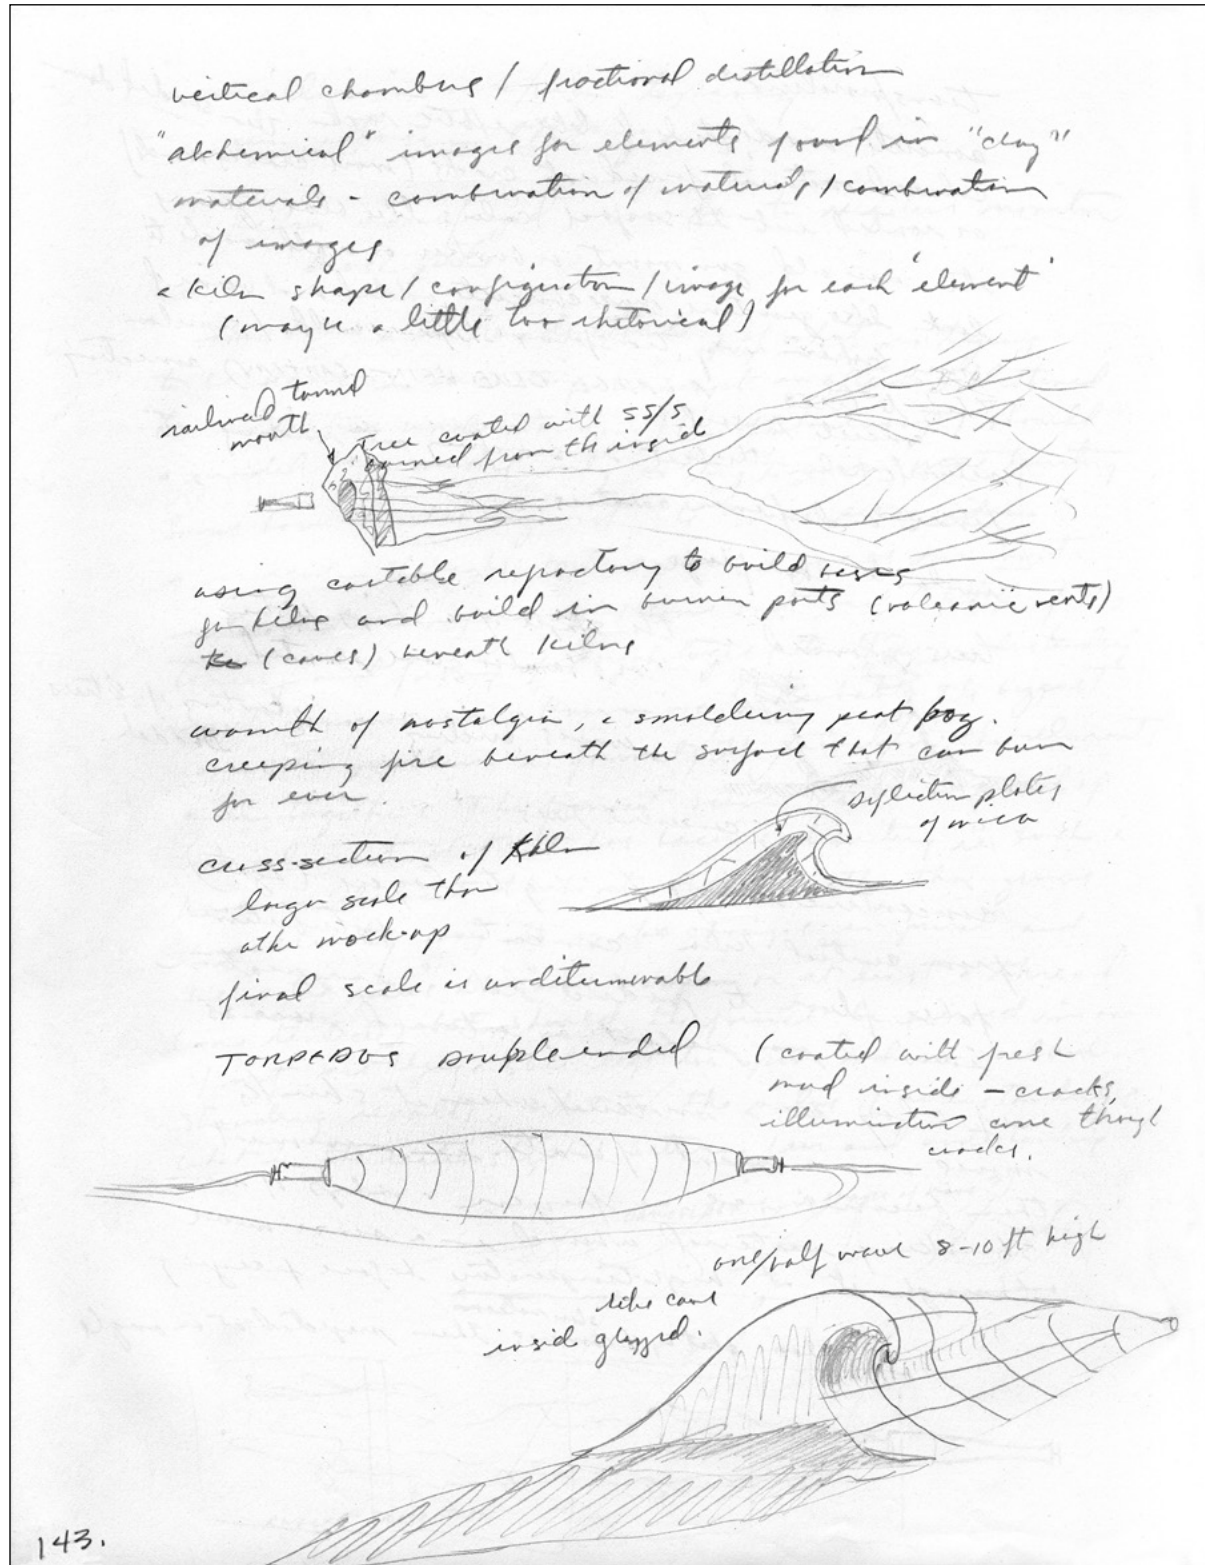 vertical chambers / fractional distillation
"alchemical" images for elements found in "clay"
materials - combination of materials / combination
of images
a kiln shape / configuration / image for each 'element'
(maybe a little too rhetorical)
railroad tunnel
mouth
Tree coated with SS/S
burned from the inside
using castable refractory to build bases
for kilns and build in burner ports (volcanic vents)
(caves) beneath kilns
warmth of nostalgia, a smoldering peat bog.
creeping fire beneath the surface that can burn
for ever.
deflection plates
of mica
cross-section of kiln
larger scale than
other mock-up
final scale is undeterminable
TORPEDOS DOUBLE ended
(coated with fresh
mud inside - cracks,
illumination come through
cracks.
one/half wave 8-10 ft high
like cave
inside glazed.
143.